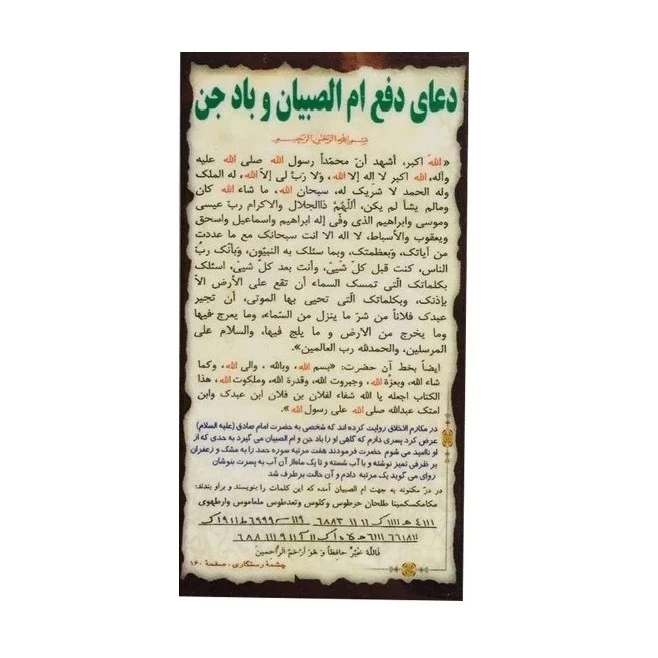 دعای دفع ام الصبیان و باد جن
بسم الله الرحمن الرحیم
«الله اکبر، أشهد أن محمّداً رسول الله صلی الله علیه
وآله، الله اکبر لا اله إلا الله، وَلا ربّ لی إلّا الله، له الملک
وله الحمد لا شریک له، سبحان الله، ما شاء الله کان
ومالم یشأ لم یکن، اَللّهُمَّ ذاالجلال والاکرام ربّ عیسی
وموسی وابراهیم الذی وفّی إله ابراهیم واسماعیل واسحق
ویعقوب والأسباط، لا اله الا انت سبحانک مع ما عددت
من آیاتک، وَبعظمتک، وبما سئلک به النبیّون، وَبأنّک ربُّ
الناس، کنت قبل کلّ شَییْ، وأنت بعد کلّ شییْ، اسئلک
بکلماتک الّتی تمسک السماء أن تقع علی الأرض الاّ
بإذنک، وبکلماتک الّتی تحیی بها الموتی، أن تجیر
عبدک فلاناً من شرّ ما ینزل من السّماء، وما یعرج فیها
وما یخرج من الارض و ما یلج فیها، والسلام علی
المرسلین، والحمدلله رب العالمین».
ایضاً بخط آن حضرت: «بسم الله، وبالله ، والی الله، وکما
شاء الله، وبعزّة الله، وجبروت الله، وقدرة الله، وملکوت الله، هذا
الکتاب اجعله یا الله شفاء لفلان بن فلان ابن عبدک وابن
امتک عبدالله صلی الله علی رسول الله».
در مکارم الاخلاق روایت کرده اند که شخصی به حضرت امام صادق (علیه السلام)
عرض کرد پسری دارم که گاهی او را باد جن و ام الصبیان می گیرد به حدی که از
او ناامید می شوم حضرت فرمودند هفت مرتبه سوره حمد را به مشک و زعفران
بر ظرفی تمیز نوشته و با آب شسته و تا یک ماه از آن آب به پسرت بنوشان
روای می گوید یک مرتبه دادم و آن حالت برطرف شد
در درّ مکنونه به جهت ام الصبیان آمده که این کلمات را بنویسند و براو بندند:
فَاللّهُ خَیْرٌ حافِظاً وَ هُوَ اَرْحَمُ الرّاحمینَ
چشمهٔ رستگاری ، صفحهٔ ۱۶۰